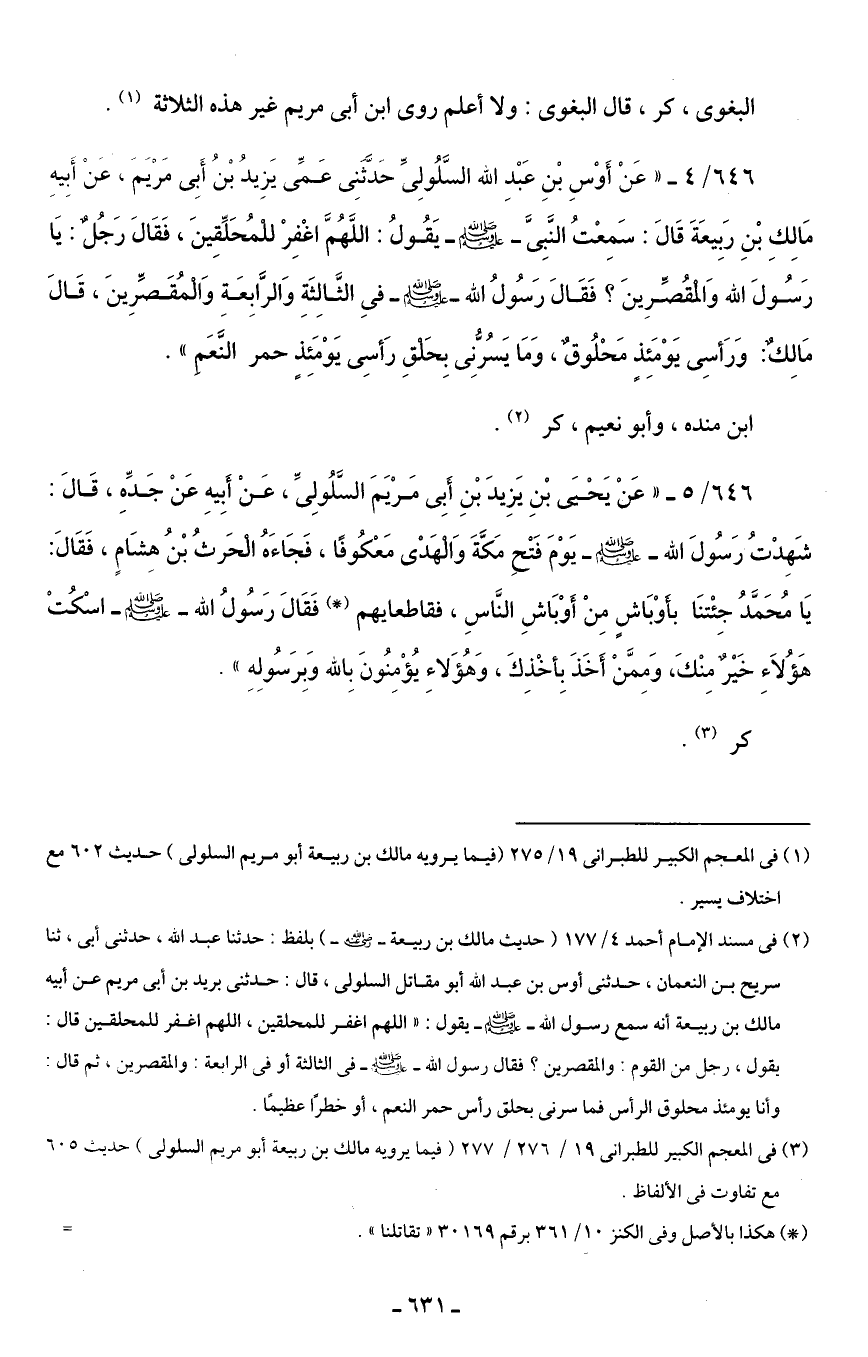 البغوى ، كر ، قال البغوى : ولا أعلم روى ابن أبى مريم غير هذه الثلاثة (١) .
٦٤٦/ ٤ ـ « عَنْ أَوْسِ بْنِ عَبْدِ الله السَّلُولِىِّ حَدَّثَنِى عَمِّى يَزِيدُ بْنُ أَبِى مَرْيَمَ ، عَنْ أَبِيهِ
مَالِكِ بْنِ رَبِيعَةَ قَالَ : سَمِعْتُ النَّبِىَّ ـ ﷺ ـ يَقُولُ : اللَّهُمَّ اغْفِرْ لِلْمُحَلِّقِينَ ، فَقَالَ رَجُلٌ : يَا
رَسُولَ الله وَالْمُقَصِّرِينَ ؟ فَقَالَ رَسُولُ الله ـ ﷺ ـ فِى الثَّالِثَةِ وَالرَّابِعَةِ وَالْمُقَصِّرِينَ ، قَالَ
مَالِكٌ: وَرَأسِى يَوْمَئِذٍ مَحْلُوقٌ ، وَمَا يَسُرُّنِى بِحَلْقِ رَأسِى يَوْمَئِذٍ حمر النَّعَمِ » .
ابن منده ، وأبو نعيم ، كر (٢) .
٦٤٦/ ٥ ـ « عَنْ يَحْيَى بْنِ يَزِيدَ بْنِ أَبِى مَرْيَمَ السَّلُولِىِّ ، عَنْ أَبِيهِ عَنْ جَدِّهِ ، قَالَ :
شَهِدْتُ رَسُولَ الله ـ ﷺ ـ يَوْمَ فَتْحِ مَكَّةَ وَالْهَدْى مَعْكُوفًا ، فَجَاءَهُ الْحَرثُ بْنُ هِشَامٍ ، فَقَالَ:
يَا مُحَمَّدُ جِئْتَنَا بِأَوْبَاشٍ مِنْ أَوْبَاشِ النَّاسِ ، فقاطعايهم (*) فَقَالَ رَسُولُ الله ـ ﷺ ـ اسْكُتْ
هَؤُلَاءِ خَيْرٌ مِنْكَ، وَمِمَّنْ أَخَذَ بِأخْذِكَ ، وَهُؤُلَاءِ يُؤْمِنُونَ بِالله وَبِرَسُولِهِ » .
كر (٣) .
(١) فى المعجم الكبير للطبرانى ١٩/ ٢٧٥ (فيما يرويه مالك بن ربيعة أبو مريم السلولى ) حديث ٦٠٢ مع
اختلاف يسير .
(٢) فى مسند الإمام أحمد ٤/ ١٧٧ ( حديث مالك بن ربيعة ـ رضي الله عنه ـ ) بلفظ : حدثنا عبد الله ، حدثنى أبى ، ثنا
سريح بن النعمان ، حدثنى أوس بن عبد الله أبو مقاتل السلولى ، قال : حدثنى بريد بن أبى مريم عن أبيه
مالك بن ربيعة أنه سمع رسول الله ـ ﷺ ـ يقول : « اللهم اغفر للمحلقين ، اللهم اغفر للمحلقين قال :
يقول ، رجل من القوم : والمقصرين ؟ فقال رسول الله ـ ﷺ ـ فى الثالثة أو فى الرابعة : والمقصرين ، ثم قال :
وأنا يومئذ محلوق الرأس فما سرنى بحلق رأس حمر النعم ، أو خطرًا عظيمًا .
(٣) فى المعجم الكبير للطبرانى ١٩ / ٢٧٦ / ٢٧٧ ( فيما يرويه مالك بن ربيعة أبو مريم السلولى ) حديث ٦٠٥
مع تفاوت فى الألفاظ .
(*) هكذا بالأصل وفى الكنز ١٠/ ٣٦١ برقم ٣٠١٦٩ « تقاتلنا » . =
ـ ٦٣١ ـ